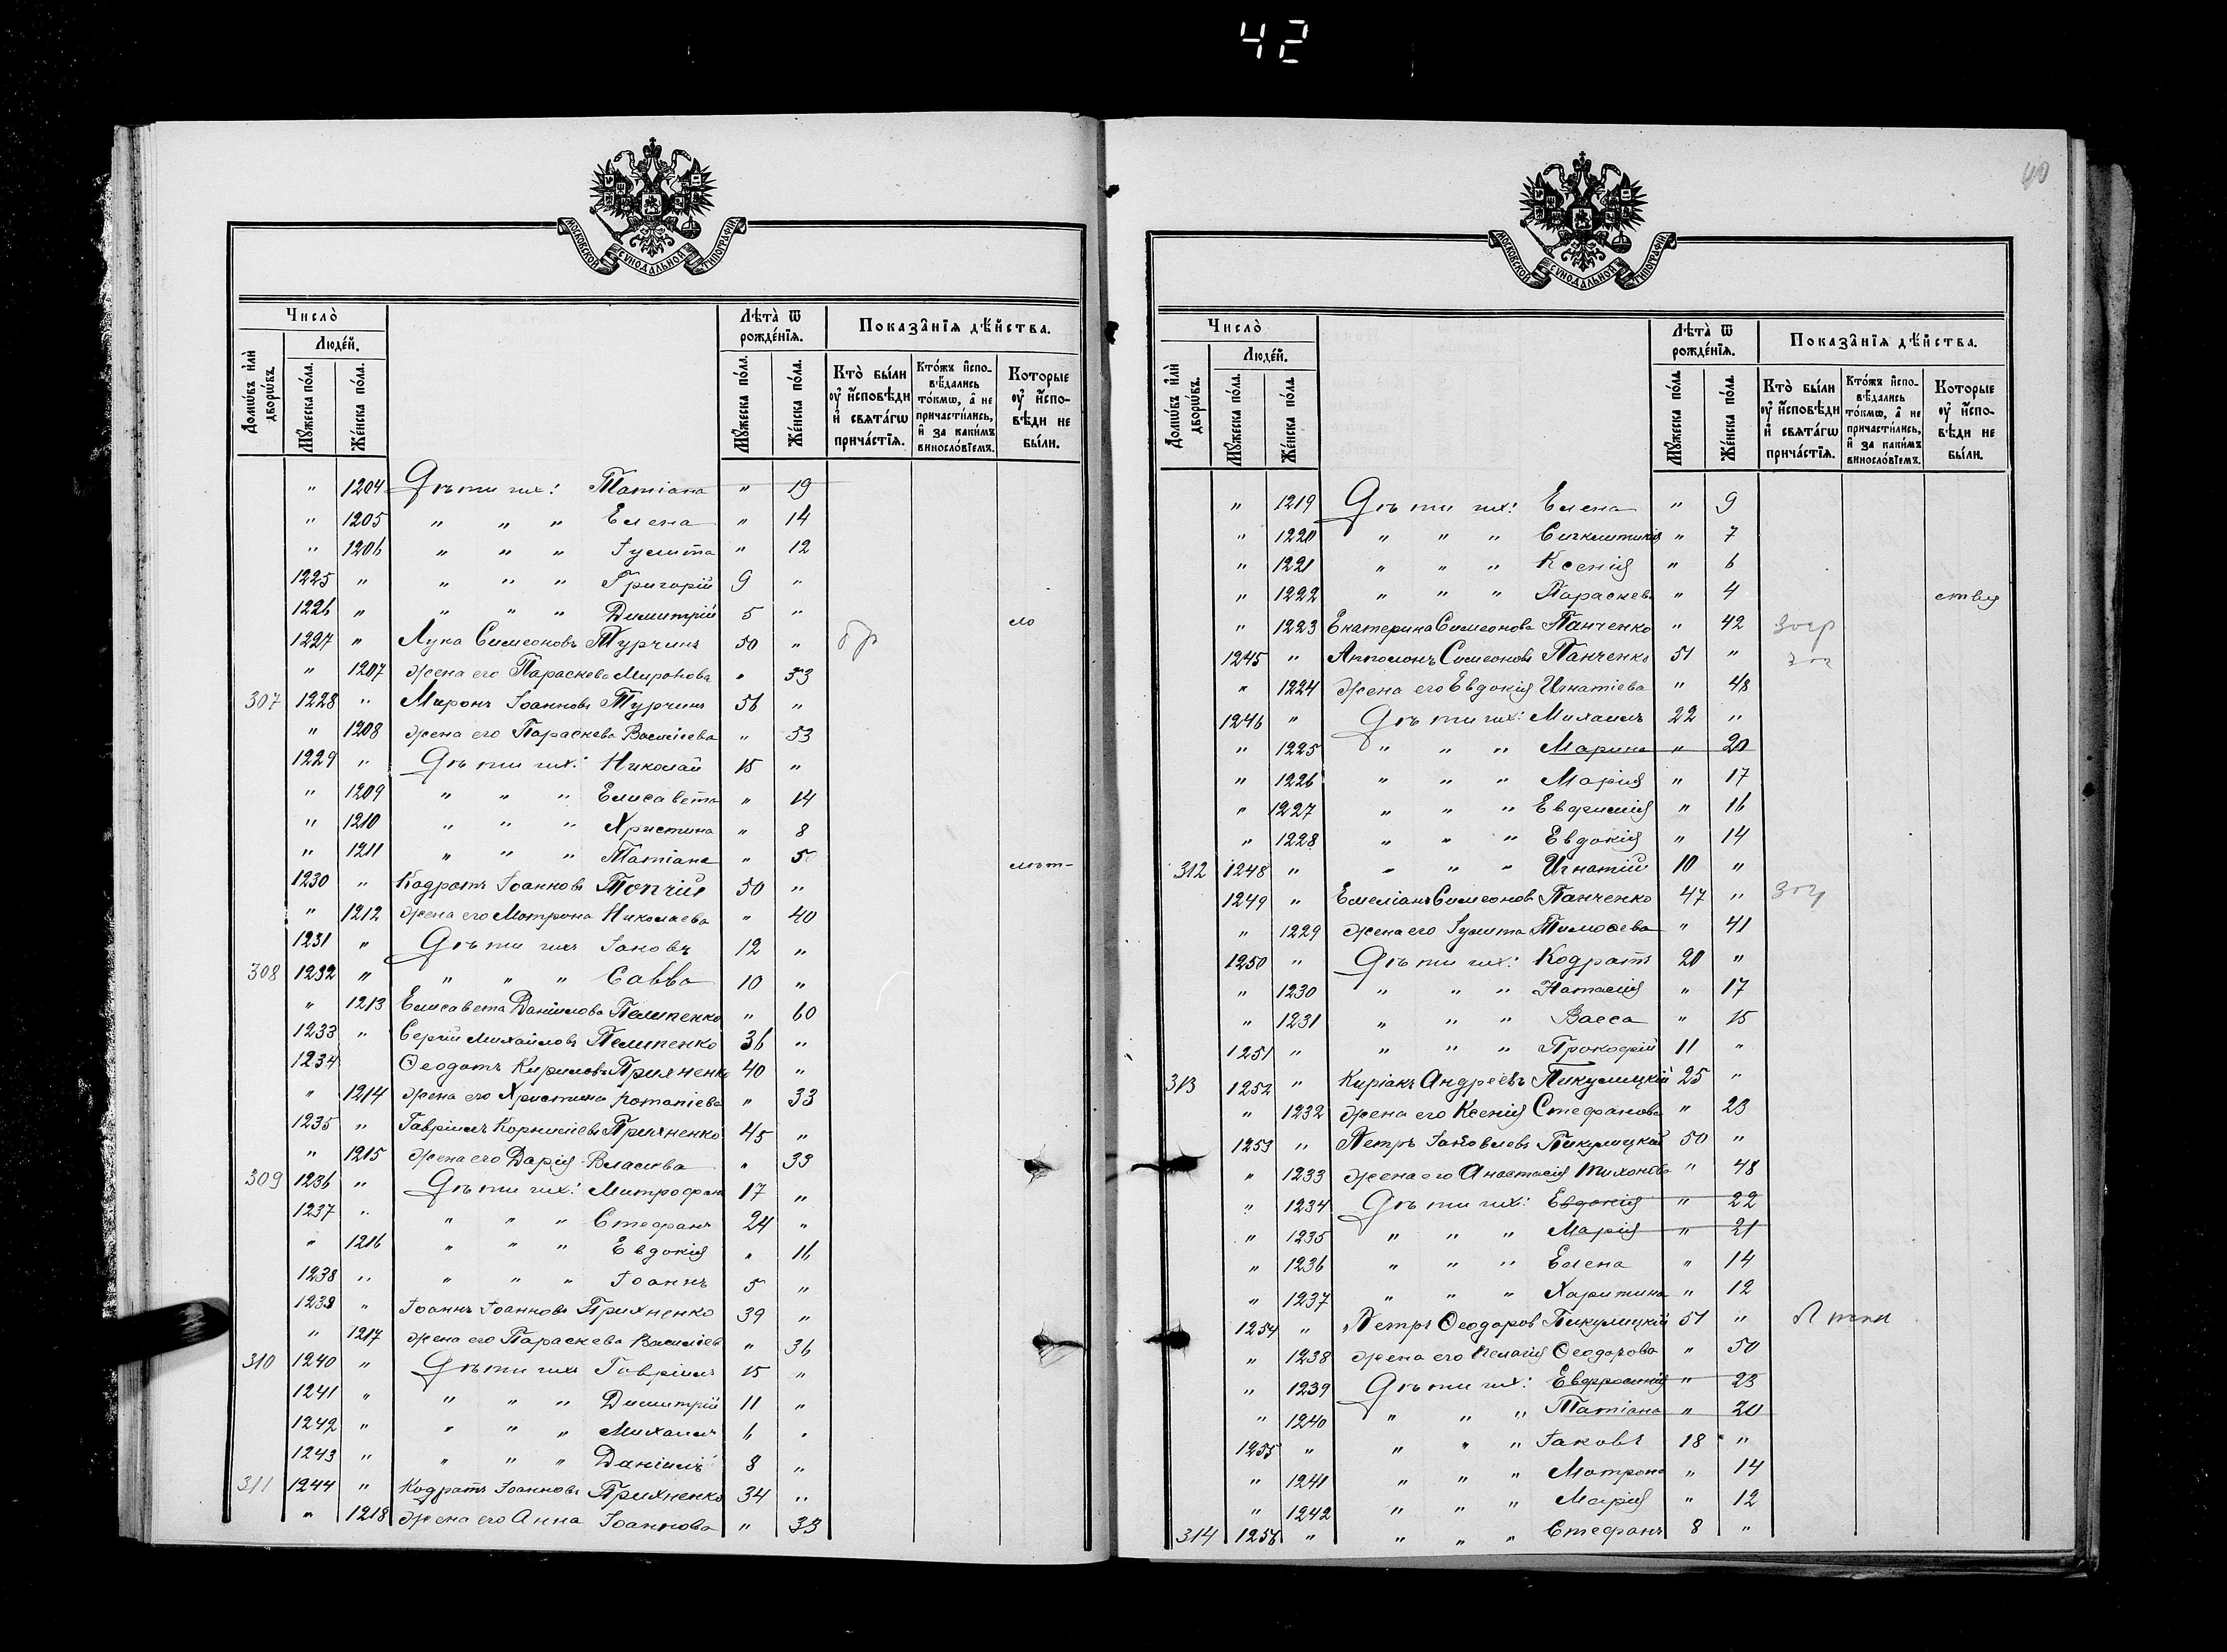 42
40
МОСКОВСКОЙ СѴНОДАЛЬНОЙ ТИПОГРАФІИ
Число̀
Людéй.
Домѡ́въ и҆лѝ дворѡ́въ.
Мꙋ́жеска по́ла.
Же́нска по́ла.
Лѣ́та ѿ рожде́нїѧ.
Мꙋ́жеска по́ла.
Же́нска по́ла.
Показа̑нїѧ дѣ́йства.
Кто̀ бы́ли оу҆ и҆сповѣ́ди и҆ свѧта́гѡ прича́стїѧ.
Кто́жъ и҆сповѣ́дались то́кмѡ, а҆ не причасти́лись, и҆ за каки́мъ винослові́емъ.
Которые оу҆ и҆сповѣ́ди не бы́ли.
" 1204 Дѣти их: Татіана " 19
" 1205 " " " Елена " 14
" 1206 " " " Іулита " 12
1225 " " " " Григорій 9 "
1226 " " " " Димитрій 5 "
ло
1227 " Лука Симеоновъ Турчинъ 50 "
" 1207 Жена его Параскева Миронова " 33
307 1228 " Миронъ Іоанновъ Турчинъ 56 "
" 1208 Жена его Параскева Василіева " 53
1229 " Дѣти их: Николай 15 "
" 1209 " " " Елисавета " 14
" 1210 " " " Христина " 8
" 1211 " " " Татіана " 5
1230 " Кодратъ Іоанновъ Топчій 50 "
" 1212 Жена его Мотрона Николаева " 40
1231 " Дѣти ихъ Іаковъ 12 "
308 1232 " " " " Савва 10 "
" 1213 Елисавета Даниилова Пелипенко " 60
1233 " Сергій Михайловъ Пелипенко 36 "
1234 Ѳеодотъ Кириловъ Прихненко 40 "
" 1214 Жена его Христина Потапіева " 33
1235 " Гавріилъ Корниліевъ Прихненко 45 "
" 1215 Жена его Дарія Власіева " 33
309 1236 " Дѣти их: Митрофанъ 17 "
1237 " " " " Стефанъ 24 "
" 1216 " " " Евдокія " 16
1238 " " " " Іоаннъ 5 "
1239 " Іоаннъ Іоанновъ Прихненко 39 "
" 1217 Жена его Параскева Василіев " 36
310 1240 " Дѣти ихъ Гавріилъ 15 "
1241 " " " " Димитрій 11 "
1242 " " " " Михаилъ 6 "
1243 " " " " Даніилъ 8 "
311 1244 " Кодратъ Іоанновъ Прихненко 34 "
" 1218 Жена его Анна Іоаннова " 33
МОСКОВСКОЙ СѴНОДАЛЬНОЙ ТИПОГРАФІИ
Число̀
Людéй.
Домѡ́въ и҆лѝ дворѡ́въ.
Мꙋ́жеска по́ла.
Же́нска по́ла.
Лѣ́та ѿ рожде́нїѧ.
Мꙋ́жеска по́ла.
Же́нска по́ла.
Показа̑нїѧ дѣ́йства.
Кто̀ бы́ли оу҆ и҆сповѣ́ди и҆ свѧта́гѡ прича́стїѧ.
Кто́жъ и҆сповѣ́дались то́кмѡ, а҆ не причасти́лись, и҆ за каки́мъ винослові́емъ.
Которые оу҆ и҆сповѣ́ди не бы́ли.
" 1219 Дѣти их: Елена " 9
" 1220 " " " Синклитикія " 7
" 1221 " " " Ксенія " 6
" 1222 " " " Параскева " 4
ствія
" 1223 Екатерина Симеонова Панченко " 42
1245 " Антономъ Симеоновъ Панченко 51 "
" 1224 Жена его Евдокія Игнатіева " 48
1246 " Дѣти их: Михаилъ 22 "
" 1225 " " " Марина " 20
" 1226 " " " Марія " 17
" 1227 " " " Евфимія " 16
" 1228 " " " Евдокія " 14
312 1248 " " " " Игнатій 10 "
1249 " Емеліанъ Симеонов Панченко 47 "
" 1229 Жена его Іулита Тимоѳеева " 41
1250 " Дѣти их: Кодратъ 20 "
" 1230 " " " Наталія " 17
" 1231 " " " Васса " 15
1251 " " " " Прокофій 11 "
313 1252 " Киріакъ Андреевъ Пикулицкій 25 "
" 1232 Жена его Ксенія Стефанова " 23
1253 " Петръ Іаковлевъ Пикулицкій 50 "
" 1233 Жена его Анастасія Тихонова " 48
" 1234 Дѣти их: Евдокія " 22
" 1235 " " " Марія " 21
" 1236 " " " Елена " 14
" 1237 " " " Харитина " 12
1254 " Петръ Ѳеодоров Пикулицкій 51 "
" 1238 Жена его Пелагія Ѳеодорова " 50
" 1239 Дѣти их: Евфросинія " 23
" 1240 " " " Татіана " 20
1255 " " " " Іаковъ 18 "
" 1241 " " " Мотрона " 14
" 1242 " " " Марія " 12
314 1256 " " " " Стефанъ 8 "